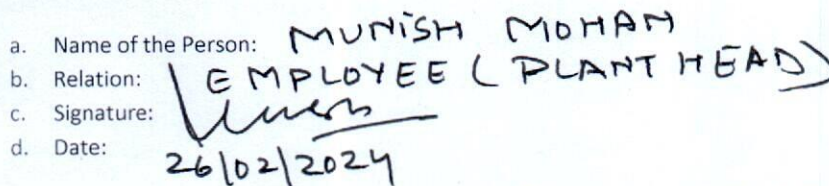 a. Name of the Person: MUNISH MOHAN
b. Relation: EMPLOYEE (PLANT HEAD)
c. Signature:
d. Date: 26/02/2024